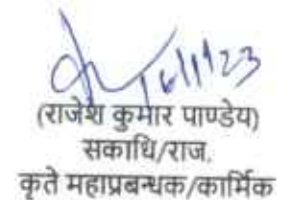 16/1/23
(राजेश कुमार पाण्डेय)
सकाधि/राज.
कृते महाप्रबन्धक/कार्मिक